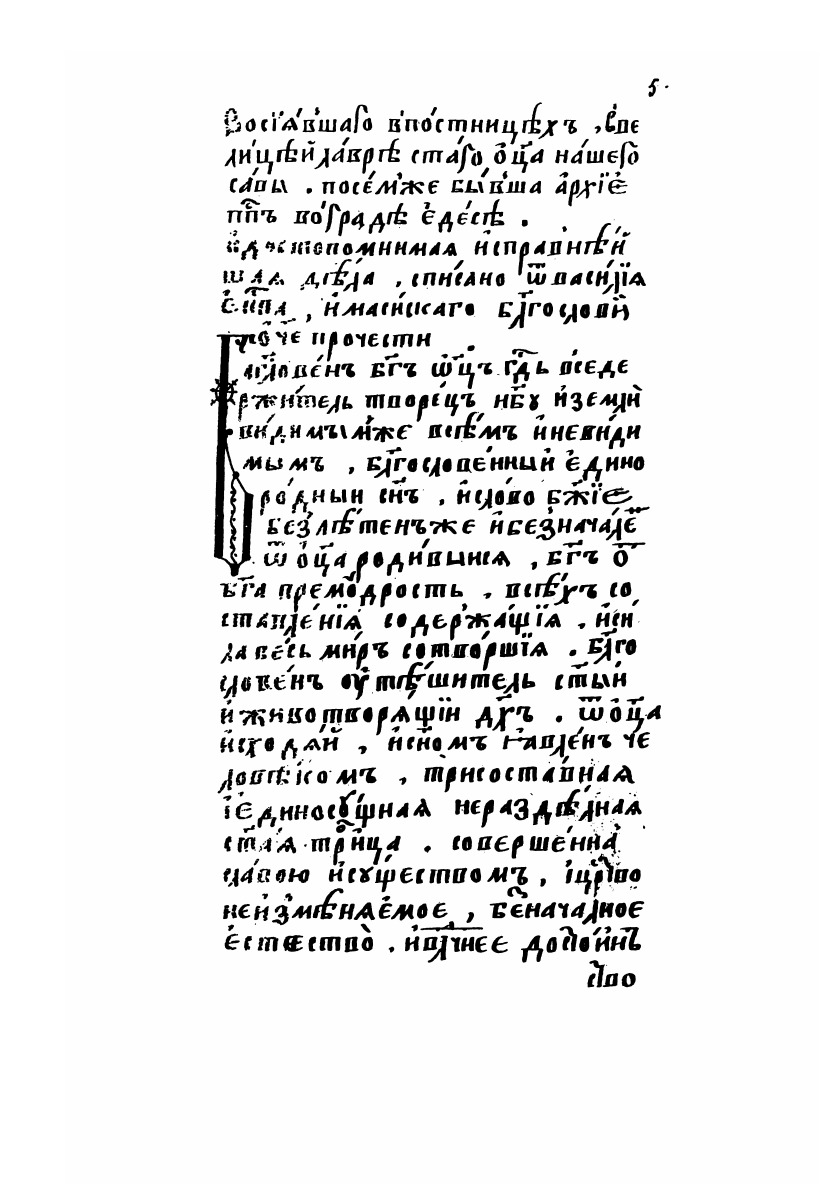 5·
Восїѧ́вшаго впо́стницѣхъ , вве
ли́цѣй ла́врѣ ста́го ѻц҃а на́шего
са́вы . посе́мже бы́вша а҆рхїе
пп҃ъ во гра́дѣ є҆де́сѣ .
достопомнимая и҆спра́внѣй
шая дѣ́ла , спи́сано ѿ васи́лїѧ
є҆п҃па , и҆ма́си́скаго бл҃госло́ви
ѻч҃е прочести
Блг҃ослове́нъ бг҃ъ ѻц҃ъ гд҃ь вседе
ржи́тель творе́цъ нб҃у и҆ земли̏
ви́димымже всѣ́мъ и҆ неви́ди
мымъ , бл҃гослове́нный є҆дино
ро́дный сн҃ъ , и҆ сло́во бж҃їе
безлѣ́тенъже и҆ безнача́ле
ѿ ѻц҃а роди́выися , бг҃ъ ѿ
бг҃а прему́дрость , всѣ́хъ со
ставле́нїѧ содержа́щїѧ . и҆ си
ла ве́сь ми́ръ сотво́ршїѧ . бл҃го
слове́нъ ѹ҆тѣ́шитель ст҃ы́й
и҆ животворѧ́щїй дх҃ъ . ѿ ѻц҃а
и҆сходѧ́й , и҆ сн҃омъ ꙗ҆вле́нъ че
ловѣ́комъ , трисоста́вная
і҆ є҆диносу́щная нераздѣ́лная
ст҃аѧ трⷪ҇ица . соверше́нна
сла́вою и҆ су́щество́мъ , і҆ црⷭ҇тво
неизмѣнѧ́емое , безнача́лное
є҆стество̀ . и҆ вл҃чнее досто́инъ
ство